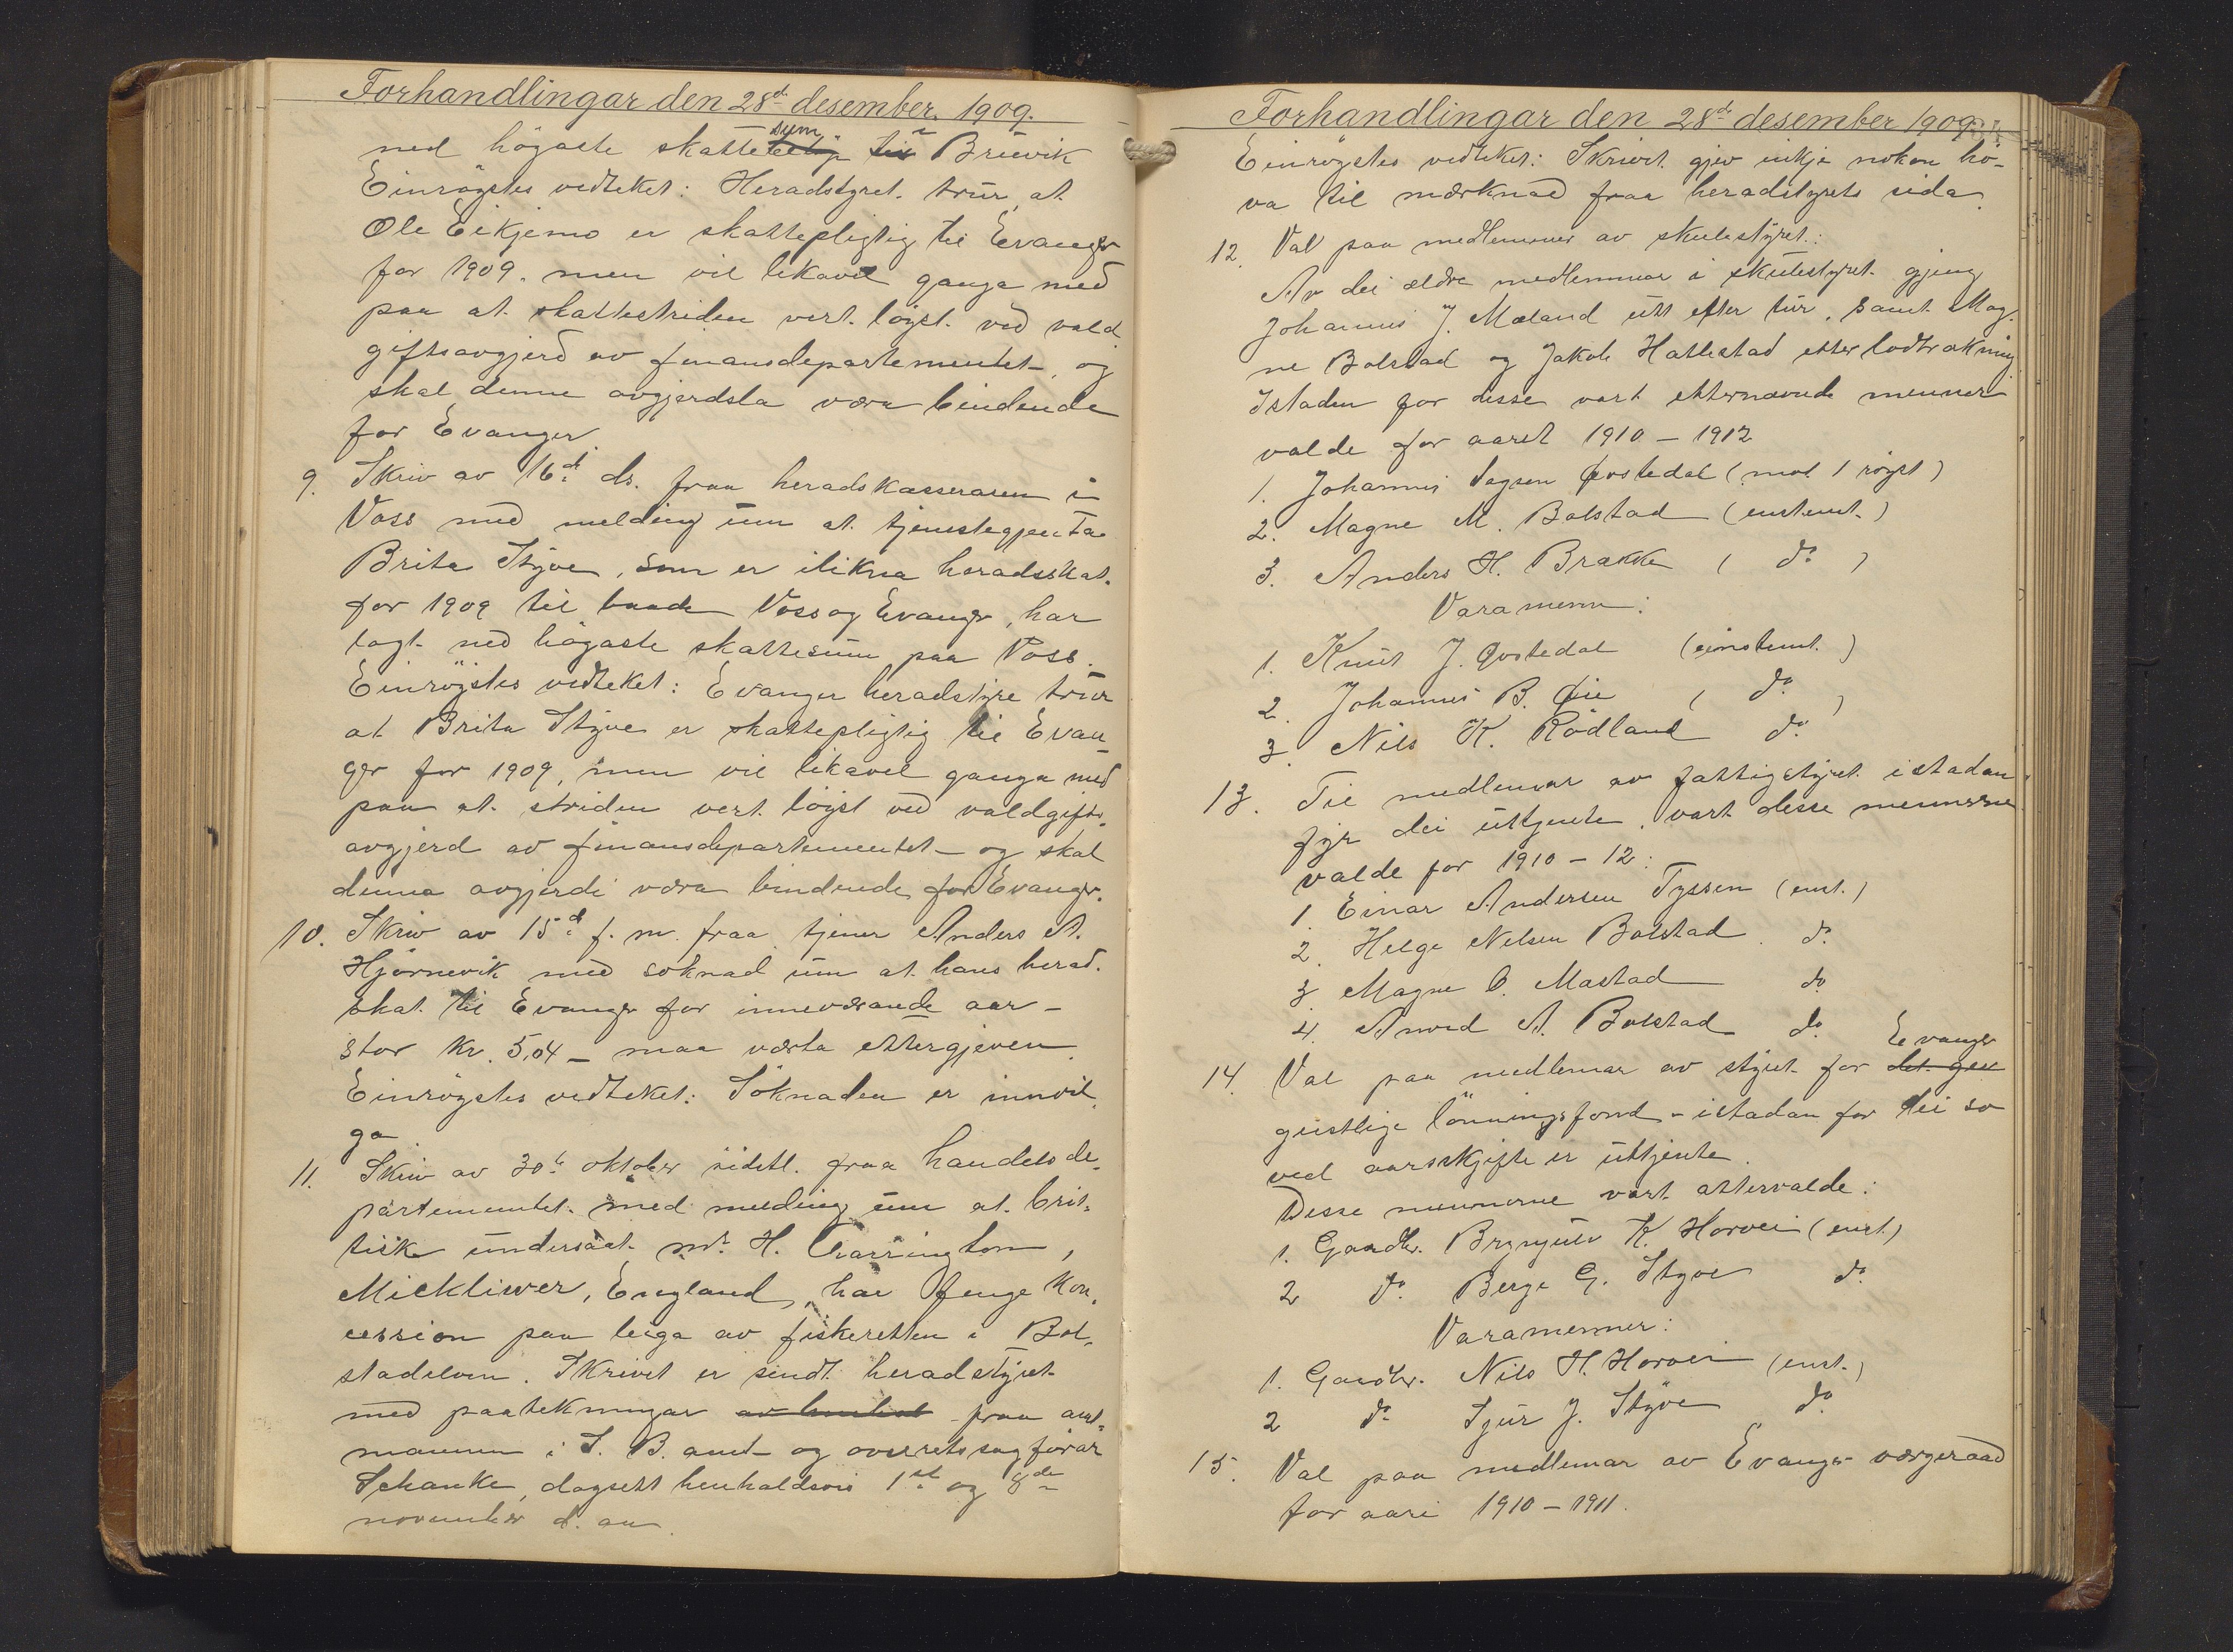 Forhandlingar den 28de desember. 1909.
med högaste skattesum i Bruvik
Einrögstes vedteket: Heradstyret trur, at
Ole Eikjemo er skattepligtig til Evanger
for 1909. men vil likavel ganga med
paa at skattestriden vert löyst ved vald
giftsavgjerd av finansdepartementet, og
skal denne avgjerdsla væra bindende
for Evanger.
9. Skriv av 16de ds. fraa heradskasseraren i
Voss med melding um at tjenestegjenta
Brita Styve, som er ilikna heradsskat
for 1909 til baade Voss og Evanger, har
lagt ned högaste skattesum paa Voss.
Einrögstes vedteket: Evanger heradstyre trur
at Brita Styve er skattepligtig til Evan-
ger for 1909, men vil likavel ganga med
paa at striden vert löyst ved valdgifts-
avgjerd av finansdepartementet – og skal
denna avgjerdi væra bindende for Evanger.
10. Skriv av 15de f. m. fraa tjener Anders A.
Hjörnevik med söknad um at hans herad-
skat til Evanger for inneværande aar –
stor kr. 5,04 – maa værta ettergjeven.
Einrögstes vedteket: Söknaden er innvil-
ga
11. Skriv av 30te oktober sidstl. fraa handelsde-
partementet med melding um at brit-
tisk undersaat mr. H. Charrington,
Mickliwer, England, har fenge kon-
cession paa leiga av fiskeretten i Bol-
stadelven. Skrivet er sendt heradstyret
med paatekningar fraa amt-
mannen i S. B. amt og overretssagförar
Schanke, dagsett henholdsvis 1ste og 8de
november d. aa.
Forhandlingar den 28de desember 1909.
Einrögstes vedteket: Skrivet gjev inkje nokon hö-
va til mærknad fraa heradstyrets sida.
12. Val paa medlemmer av skulestyret:
Av dei ældre medlemmar i skulestyret gjeng
Johannes J. Mæland utt efter tur, samt Mag-
ne Bolstad og Jakob Hallestad etter lodtrækning
Istaden for desse vart etternævnde menner
valde for aaret 1910 – 1912
1. Johannes Dagsen Qvstedal (mot 1 röyst)
2. Magne M. Bolstad (einstemt.)
3. Anders H. Brække ( do )
Varamenn:
1. Knut J. Qvstedal (einstemt.)
2. Johannes B. Øie ( do )
3. Nils K. Rödland do
13. Til medlemar av fattigstyret istadan
fyr dei uttjente, vart desse mennerne
valde for 1910 – 12:
1. Einar Andersen Tyssen (enst.)
2. Helge Nelsen Bolstad. do
3. Magne O. Mastad do
4. Amund A. Bolstad do
14. Val paa medlemar av styret for det gei Evanger
geistlige lönningsfond – istadan for dei so
ved aarsskjifte er uttjente.
Desse mennerne vart attervalde:
1. Gaardbr. Brynjulv K. Horvei (enst.)
2 do Berge G. Styve do
Varamenner:
1. Gaardbr. Nils H. Horvei (enst.)
2 do Sjur J. Styve do
15. Val paa medlemar av Evanger værgeraad
for aari 1910 – 1911.